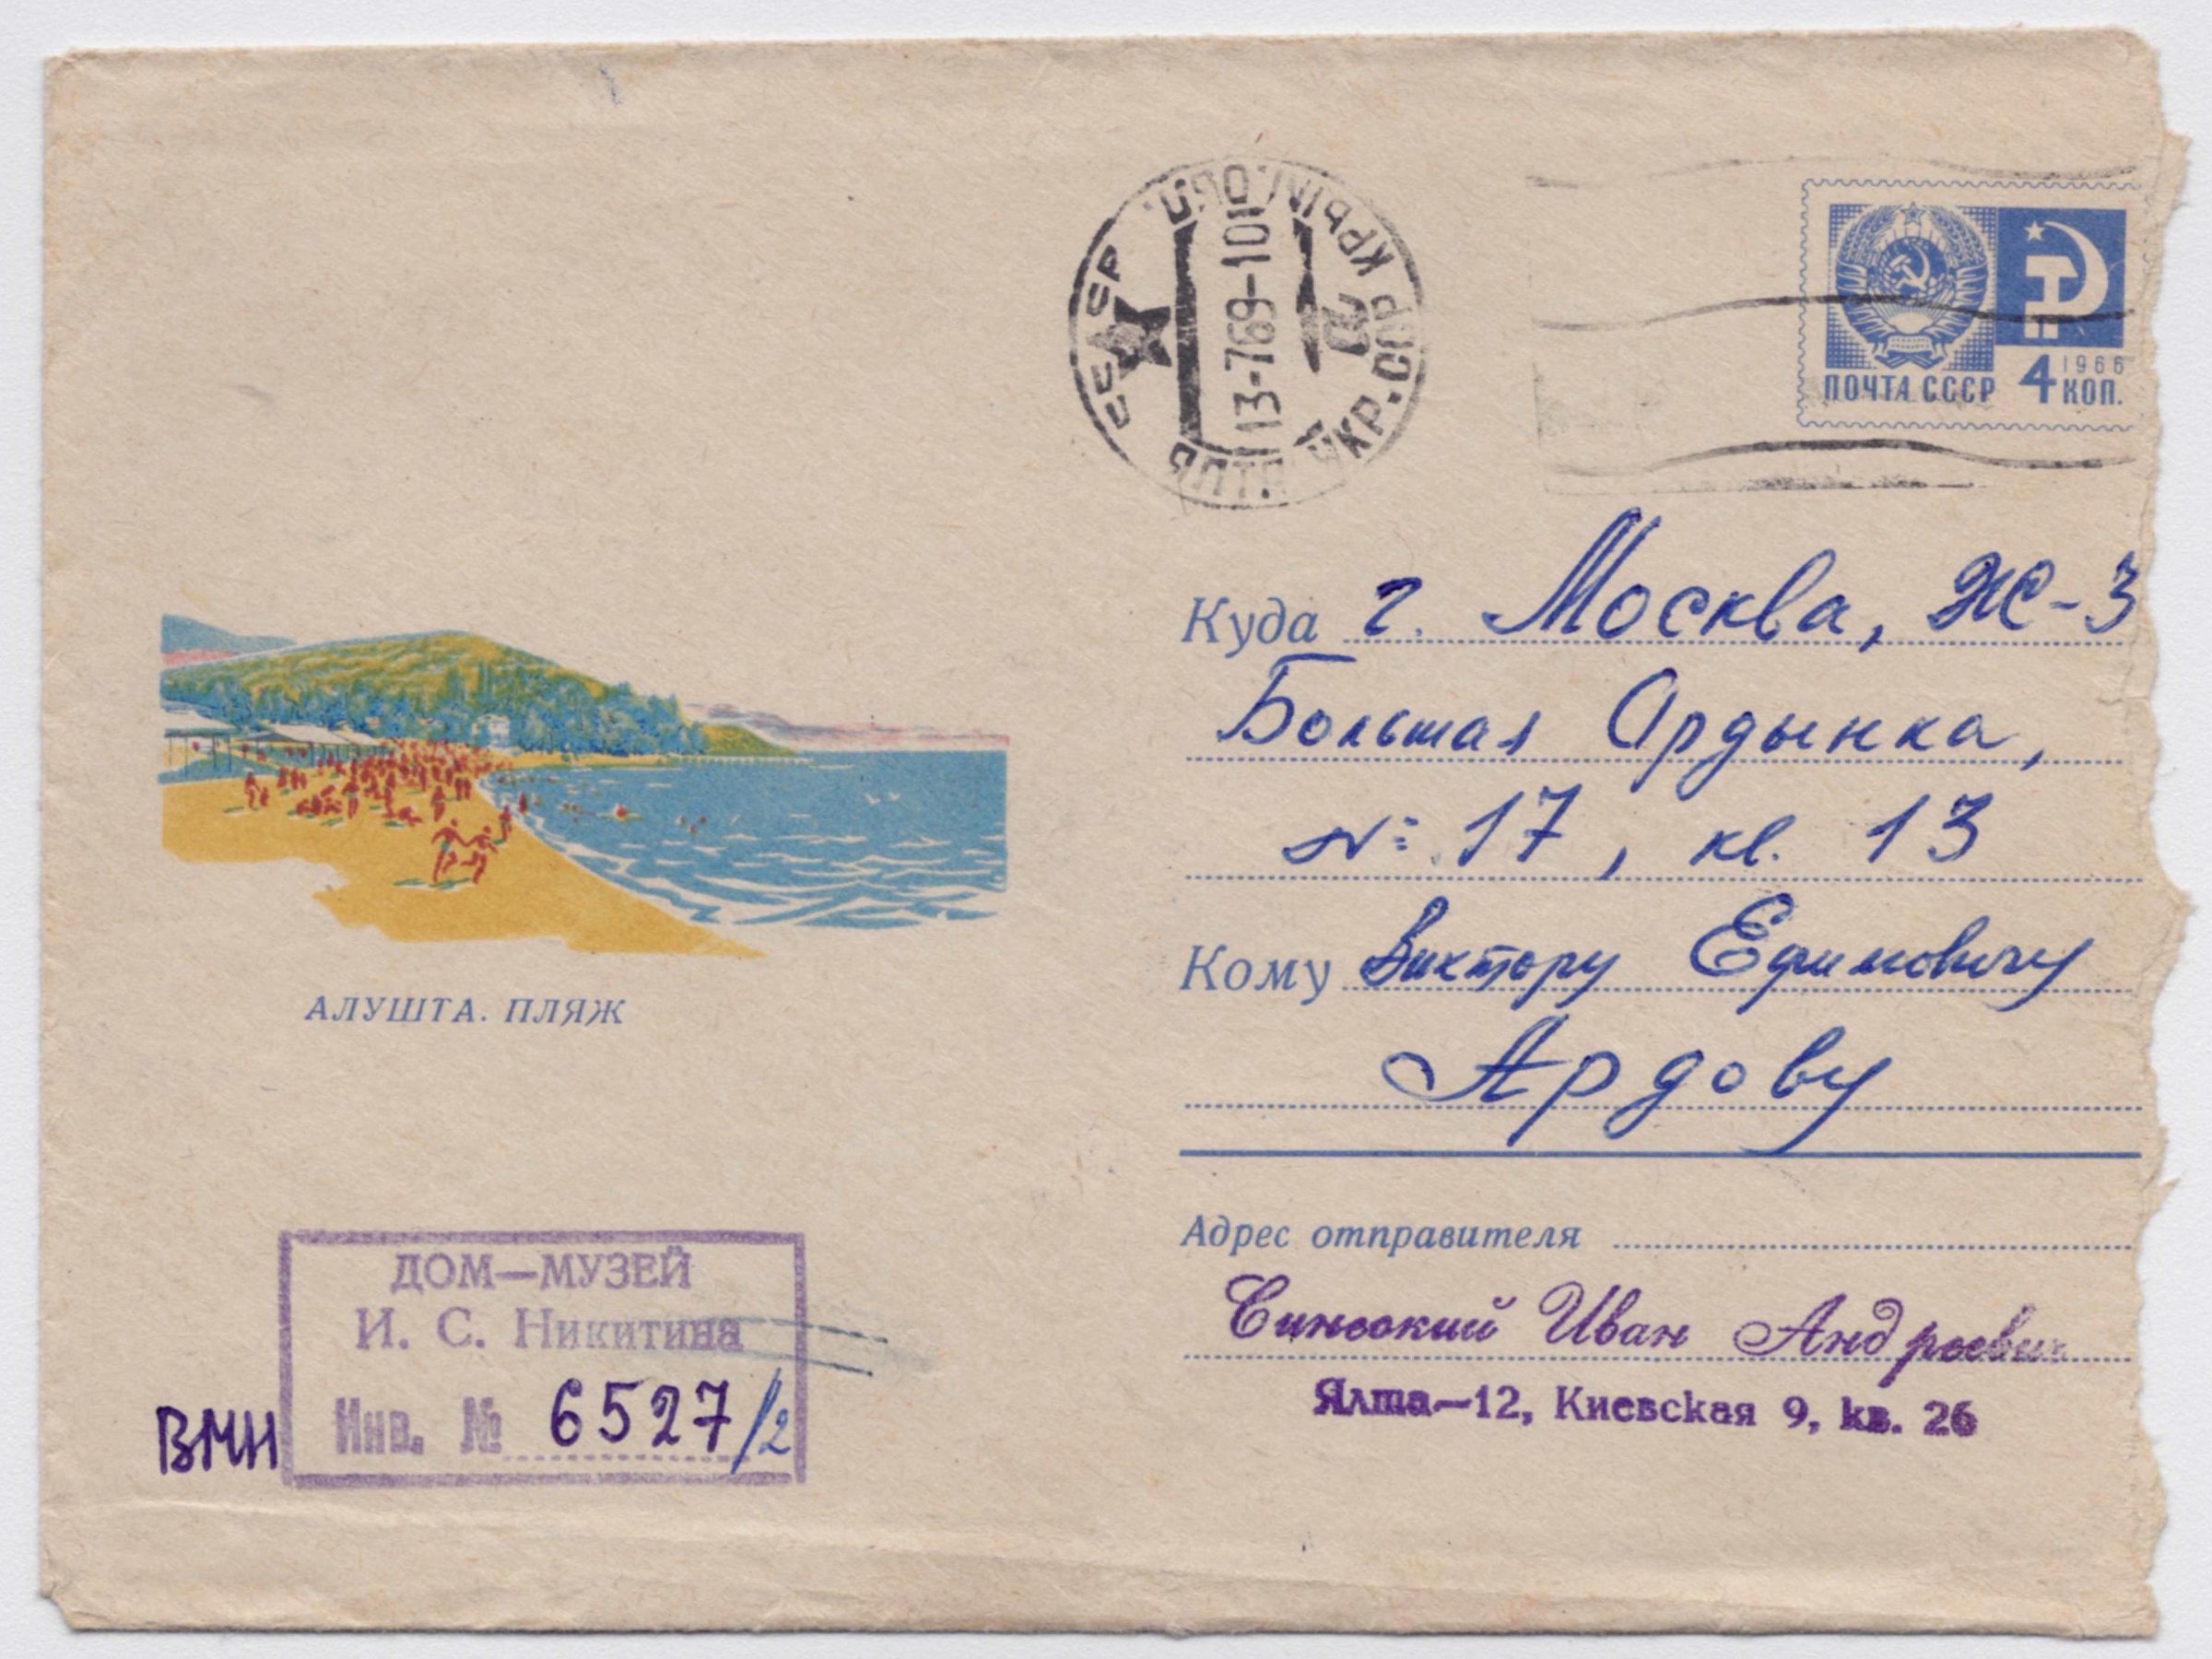 СССР УКР. ССР КРЫМ. ОБЛ.
ЯЛТА
13-769-10
ПОЧТА СССР 4 КОП.
1966
Куда г. Москва, Ж-3
Большая Ордынка,
№ 17, кв. 13
Кому Виктору Ефимовичу
Ардову
АЛУШТА. ПЛЯЖ
Адрес отправителя
Синеокий Иван Андреевич
Ялта—12, Киевская 9, кв. 26
ДОМ—МУЗЕЙ
И. С. Никитина
ВМН Инв. № 6527/2